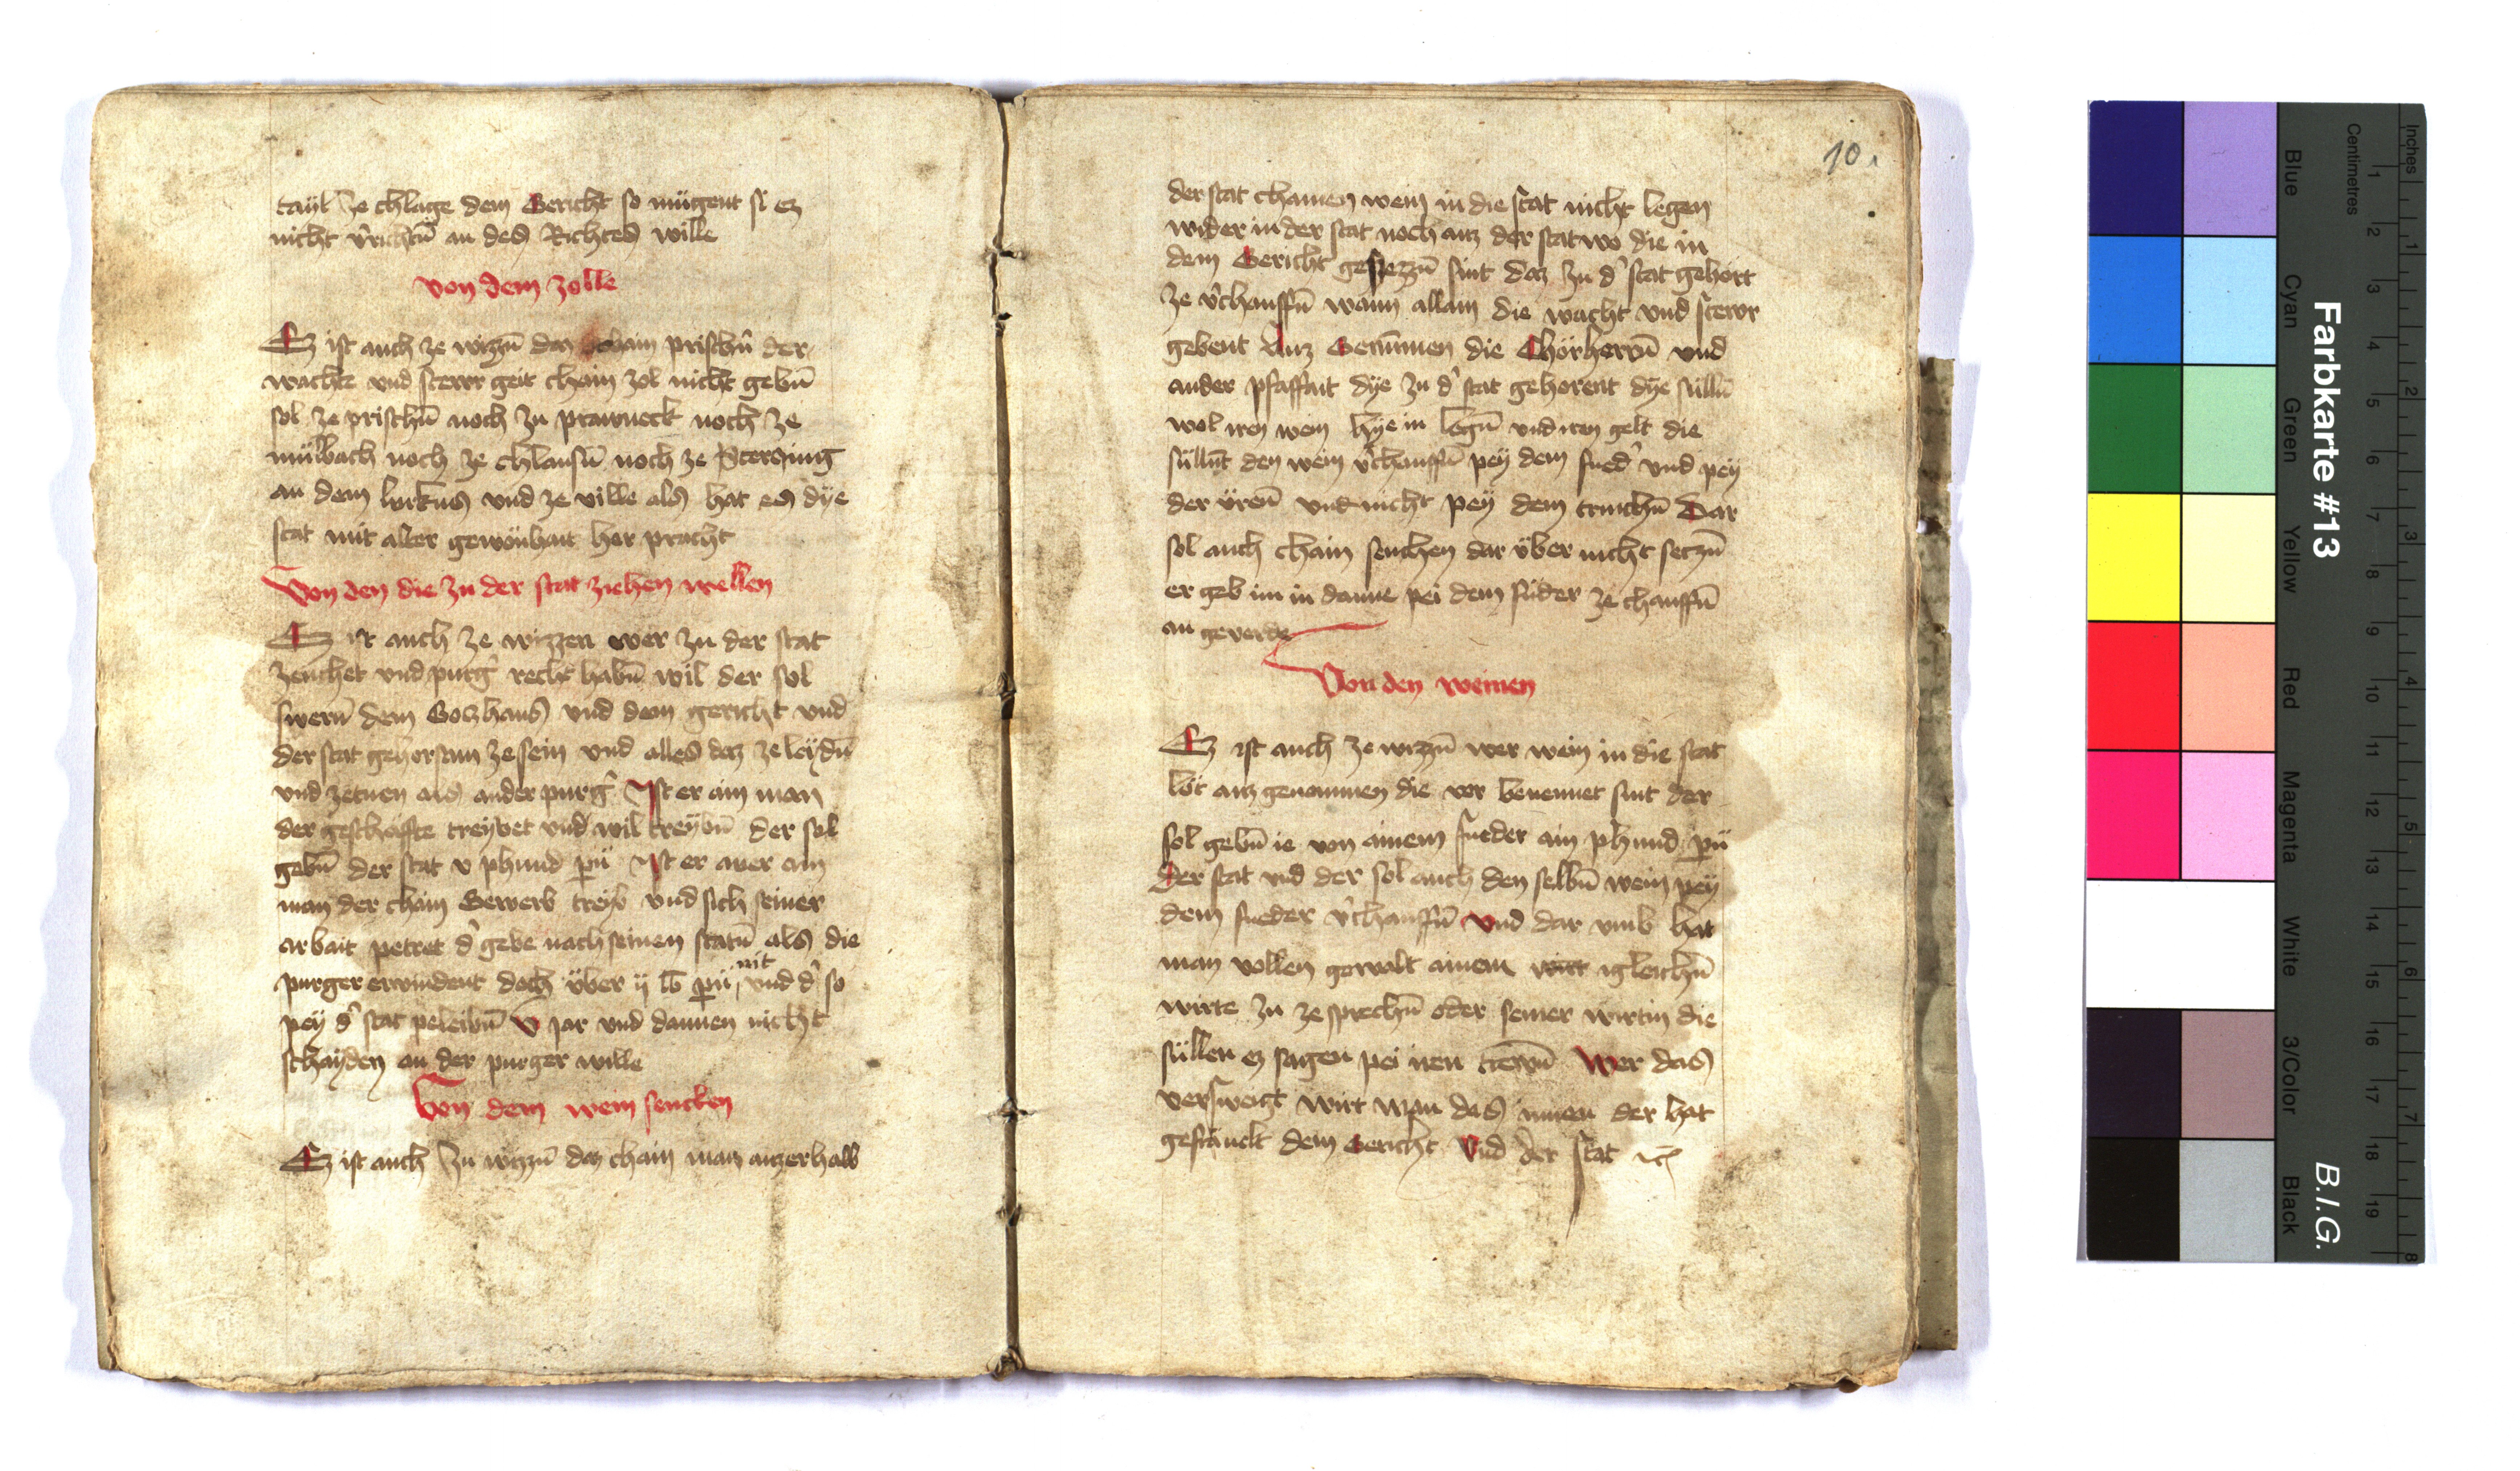 taÿl ze chlage dem Gericht so mügent si ez
nicht v̄richtn̄ an des Richters wille
von dem zolle
Ez ist auch ze wizzn̄ daz chain prischn̄ der
wachte und stewr geit chain zol nicht gebn̄
sol ze prischn̄ noch zu prawneck noch ze
mülbach noch ze chlausn̄ noch ze Sterzing
an dem lurkns und ze ville als hat es dÿe
stat mit alter gewonhait her pracht
Von den die zu der stat ziehen wellen
Ez ist auch ze wizzen wer zu der stat
zeuchet und purg̉ recht habn̄ wil der sol
swern̄ dem Gotzhaus und dem gericht und
der stat gehorsam ze sein und alles daz ze leÿdn̄
und ze tuen als ander purg̉ Ist er ain man
der geschäffte treybet und wil treÿbn̄ der sol
gebn̄ der stat v phund pn̄ Ist er aver ain
man der chain Gewerb treib und sich seiner
arbait petret d̉ gebe nach seinen statn̄ als die
purger erwindent doch über ij lb pn̄ nit und d̉ so
pey d̉ stat peleibn̄ v jar und dannen nicht
schaÿden an der purger wille
Von dem wein sencken
Ez ist auch zu wizzn̄ daz chain man auzerhalb
10.
der stat chainen wein in die stat nicht legen
wider in der stat noch auz der stat wo die in
dem Gericht gesezzn̄ sint daz zu d̉ stat gehört
ze v̉chauffn̄ wann allain die wacht und stewr
gebent Auz Genumen die Chörherrn̄ und
ander pfaffait dÿe zu d̉ stat gehorent dÿe sülln̄
wol iren wein hÿe in legn̄ und iren gelt die
süllnt den wein v̉chauffn̄ peÿ dem fued̉ und peÿ
der ürn̄ und nicht peÿ dem trinchn̄ Dar
sol auch chain senchen dar über nicht setzn̄
er geb im in danne pei dem füder ze chauffn̄
an geverde
Von den weinen
Ez ist auch ze wizzn̄ wer wein in die stat
löt auz genomen die vor benennet sint der
sol gebn̄ ie von ainem fueder ain phund pn̄
der stat und der sol auch den selbn̄ wein peÿ
dem fueder v̉chauffn̄ und dar umb hat
man vollen gewalt ainem wirt igleichn̄
wirte zu ze sprechn̄ oder seiner wirtin die
süllen ez sagen pei iren trewn̄ Wer das
versweigt wirt man das innen der hat
gefrauelt dem Gericht und der stat etc
Farbkarte #13
B.I.G.
Blue
Cyan
Green
Yellow
Red
Magenta
White
3/Color
Black
Centimetres
1 2 3 4 5 6 7 8 9 10 11 12 13 14 15 16 17 18 19
Inches
1 2 3 4 5 6 7 8